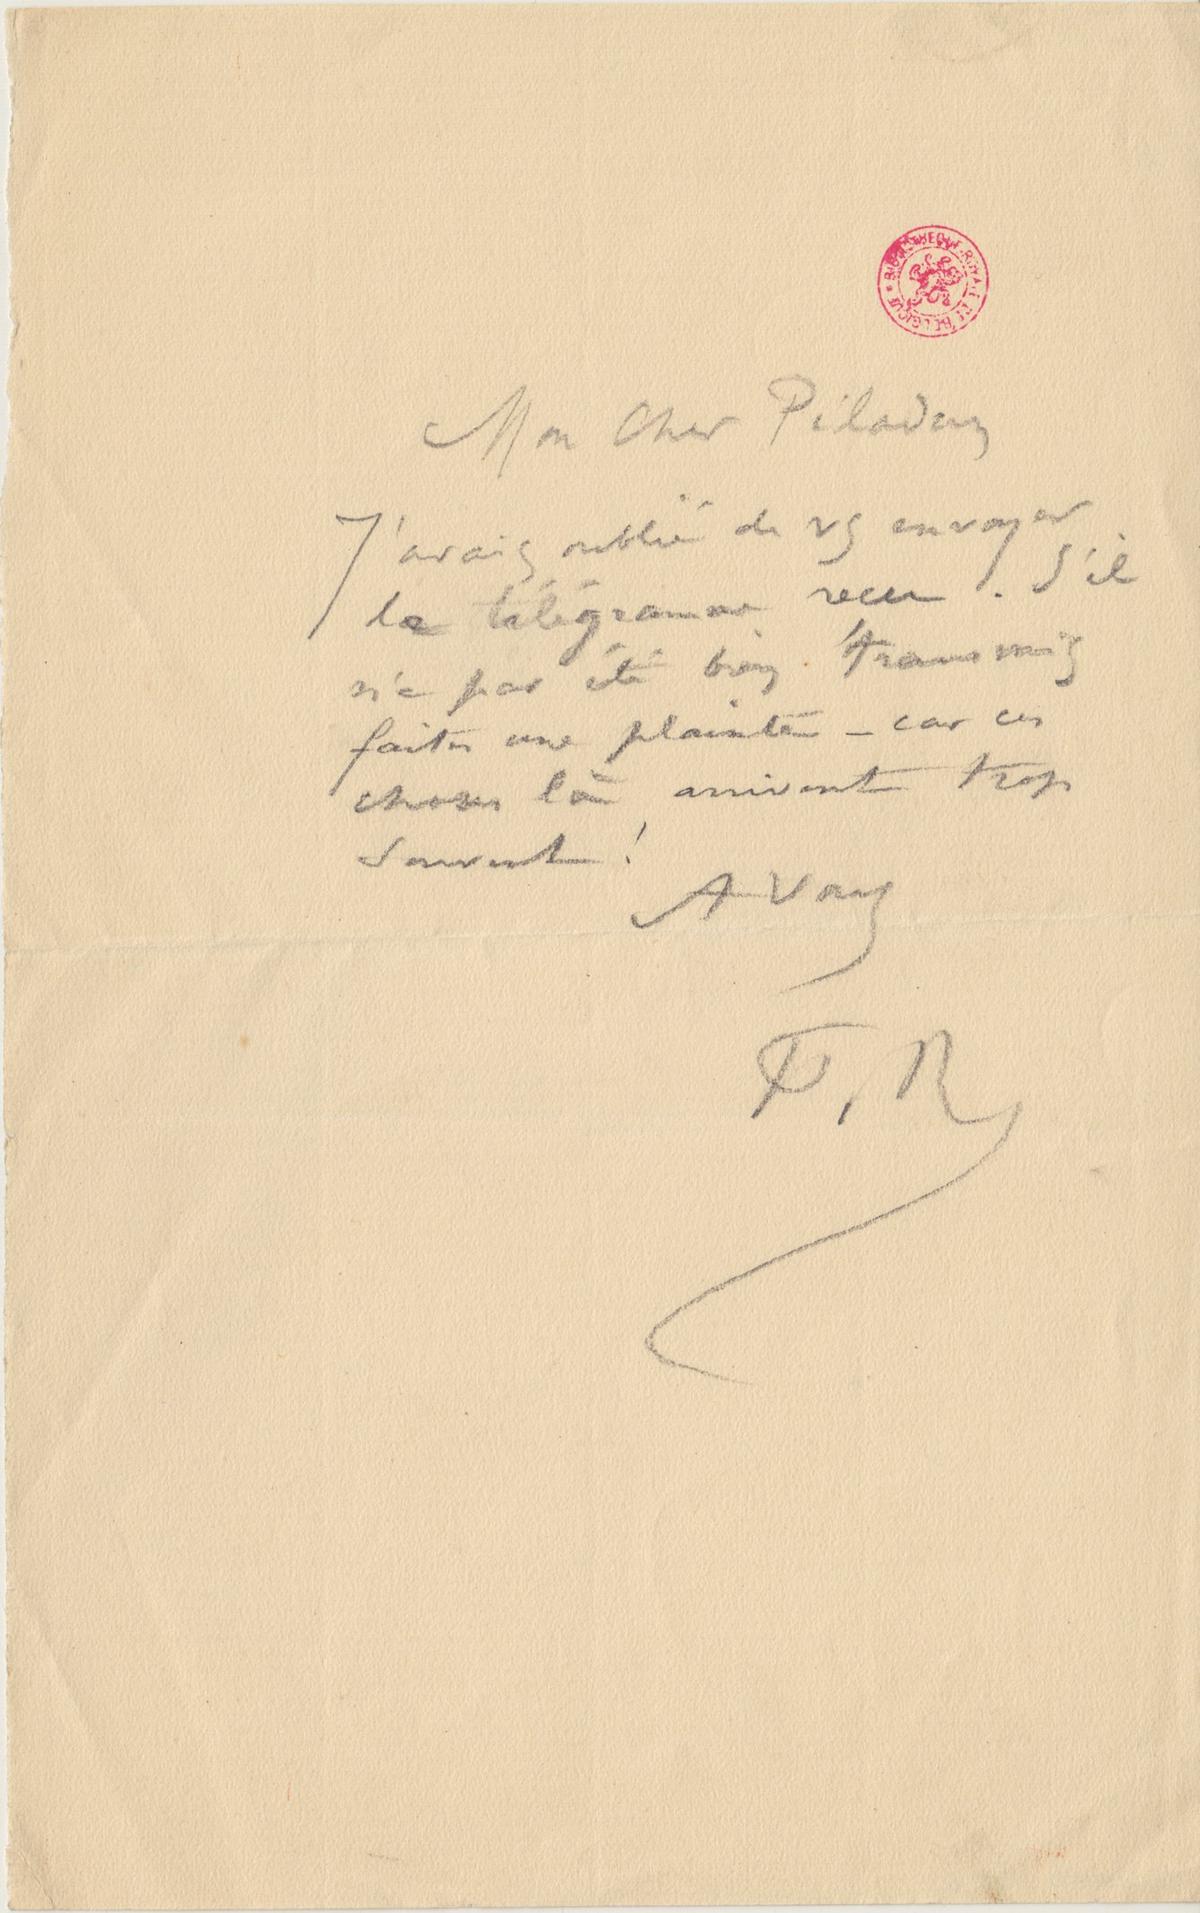 BIBLIOTHEQUE ROYALE DE BELGIQUE
Mon Cher Péladan
J'avais oublié de vs envoyer
le télégramme recu. S'il
n'a pas été bien transmis
faites une plainte – car ces
choses là arrivent trop
souvent !
A Vous
F. R